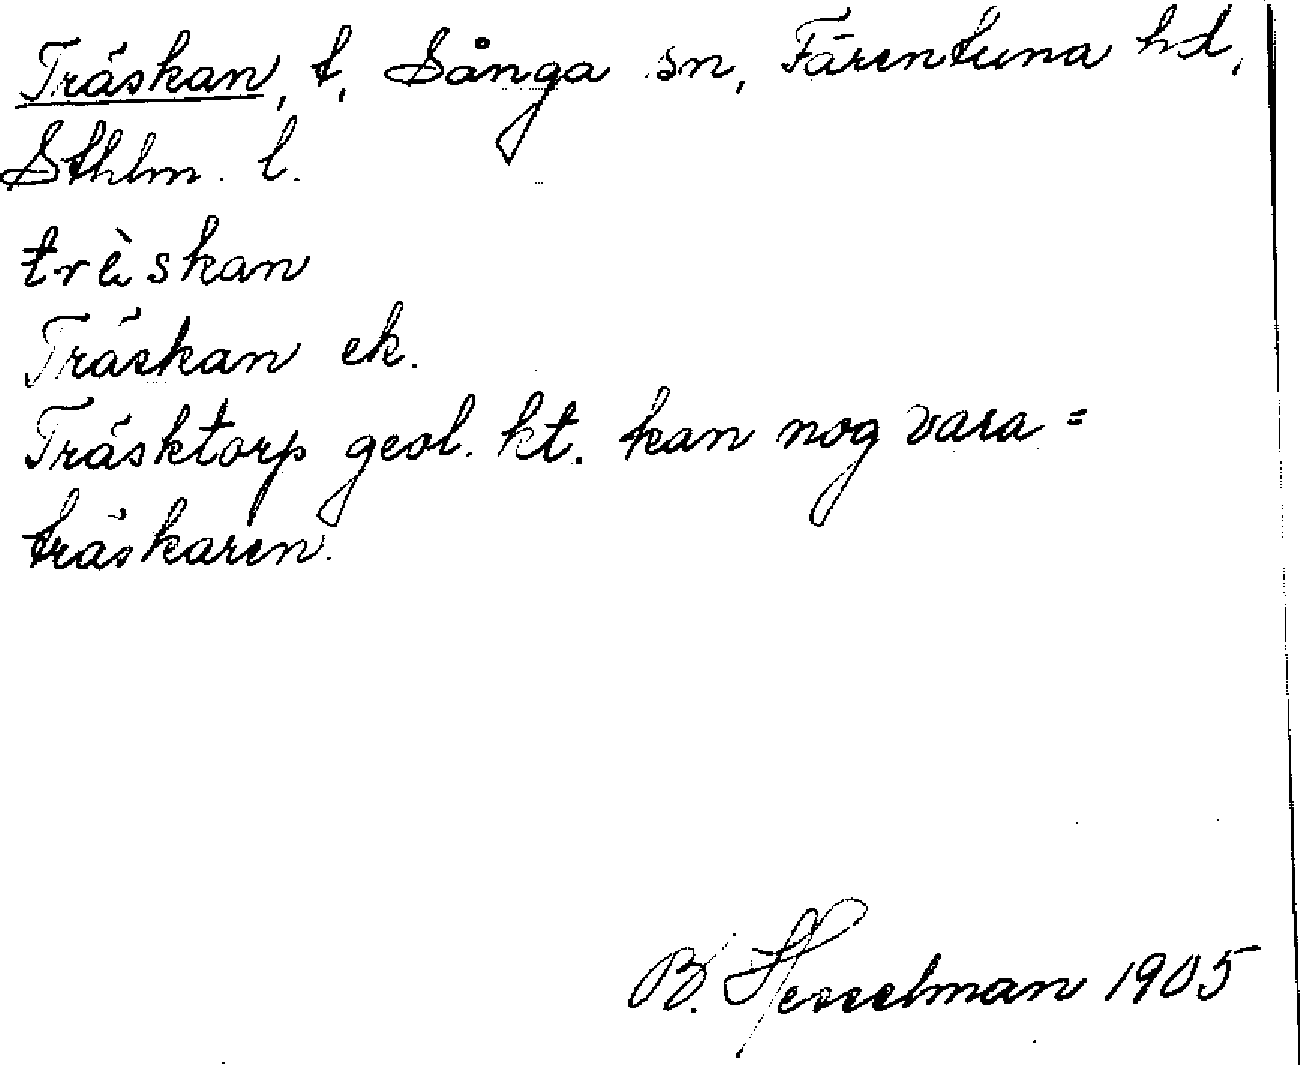 Träskan, t, Sånga sn, Färentuna hd,
Sthlm. l.
trèskan
Träskan ek.
Träsktorp geol. kt. kan nog vara =
träskaren.
B. Hesselman 1905